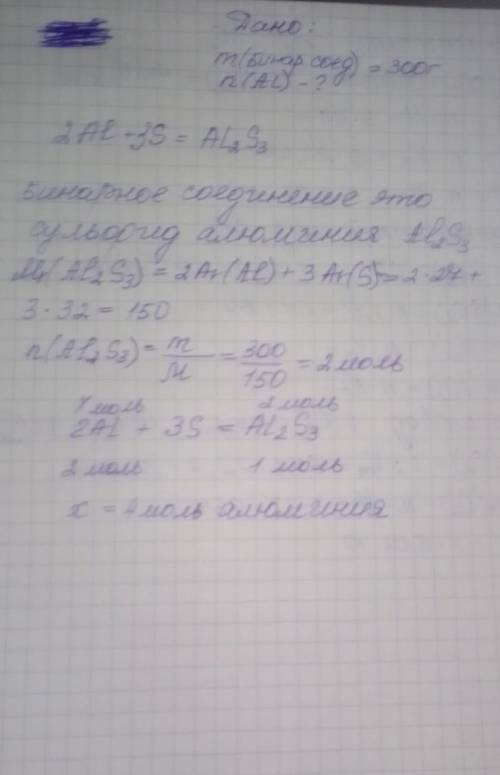 Дано:
m(бинар соед) = 300г
n(Al) - ?
2Al + 3S = Al₂S₃
Бинарное соединение это
сульфид алюминия Al₂S₃
Mr(Al₂S₃) = 2Ar(Al) + 3Ar(S) = 2·27 +
3·32 = 150
n(Al₂S₃) = m/M = 300/150 = 2 моль
4 моль 2 моль
2Al + 3S = Al₂S₃
2 моль 1 моль
x = 4 моль алюминия